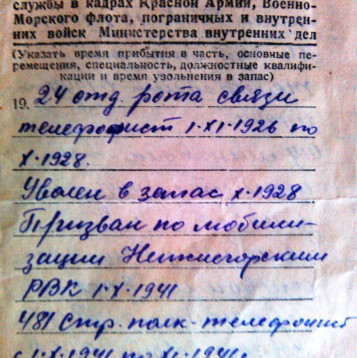 службы в кадрах Красной Армии, Военно-
Морского флота, пограничных и внутрен-
них войск Министерства внутренних дел
(Указать время прибытия в часть, основные пе-
ремещения, специальность, должностные квалифи-
кации и время увольнения в запас)
19. 24 отд. рота связи
телефонист 1-XI-1926 по
X-1928.
Уволен в запас X-1928
Призван по мобили-
зации Нижнегорским
РВК 1-X-1941
481 стр. полк-телефонист
с 1-X-1941 по XI-1941г